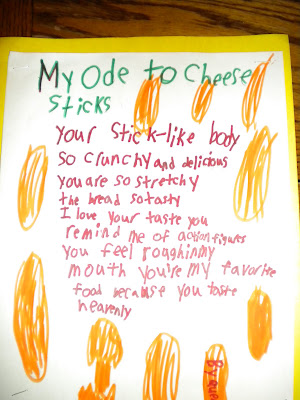 My Ode to Cheese
Sticks
Your Stick-like body
So crunchy and delicious
You are so stretchy
the bread so tasty
I love your taste you
remind me of action figures
You feel rough in my
mouth you're my favorite
food because you taste
heavenly
By